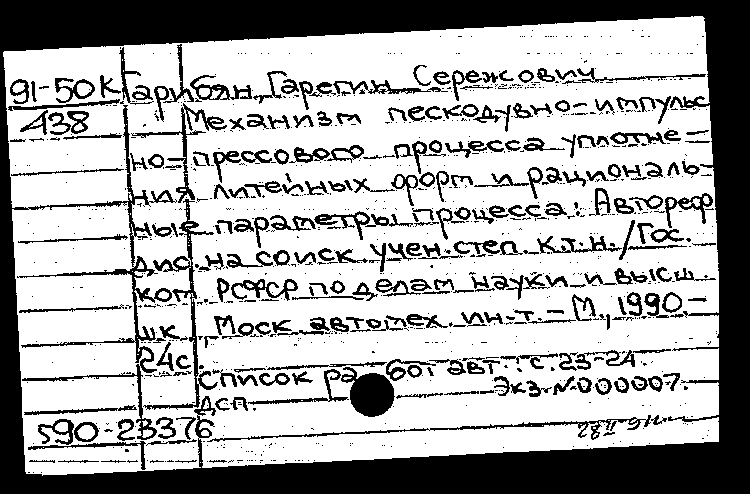 91-50К Гарибян, Гарегин Сережович
438 Механизм пескодувно-импульс
но-прессового процесса уплотне-
ния литейных форм и рациональ-
ные параметры процесса: Автореф
дис. на соиск. учен. степ. к.т.н. / Гос.
ком. РСФСР по делам науки и высш.
шк., Моск. автомех. ин-т. - М., 1990.-
24с.
Список работ авт.: с. 23-24.
ДСП. Экз. №000007.
590-23376